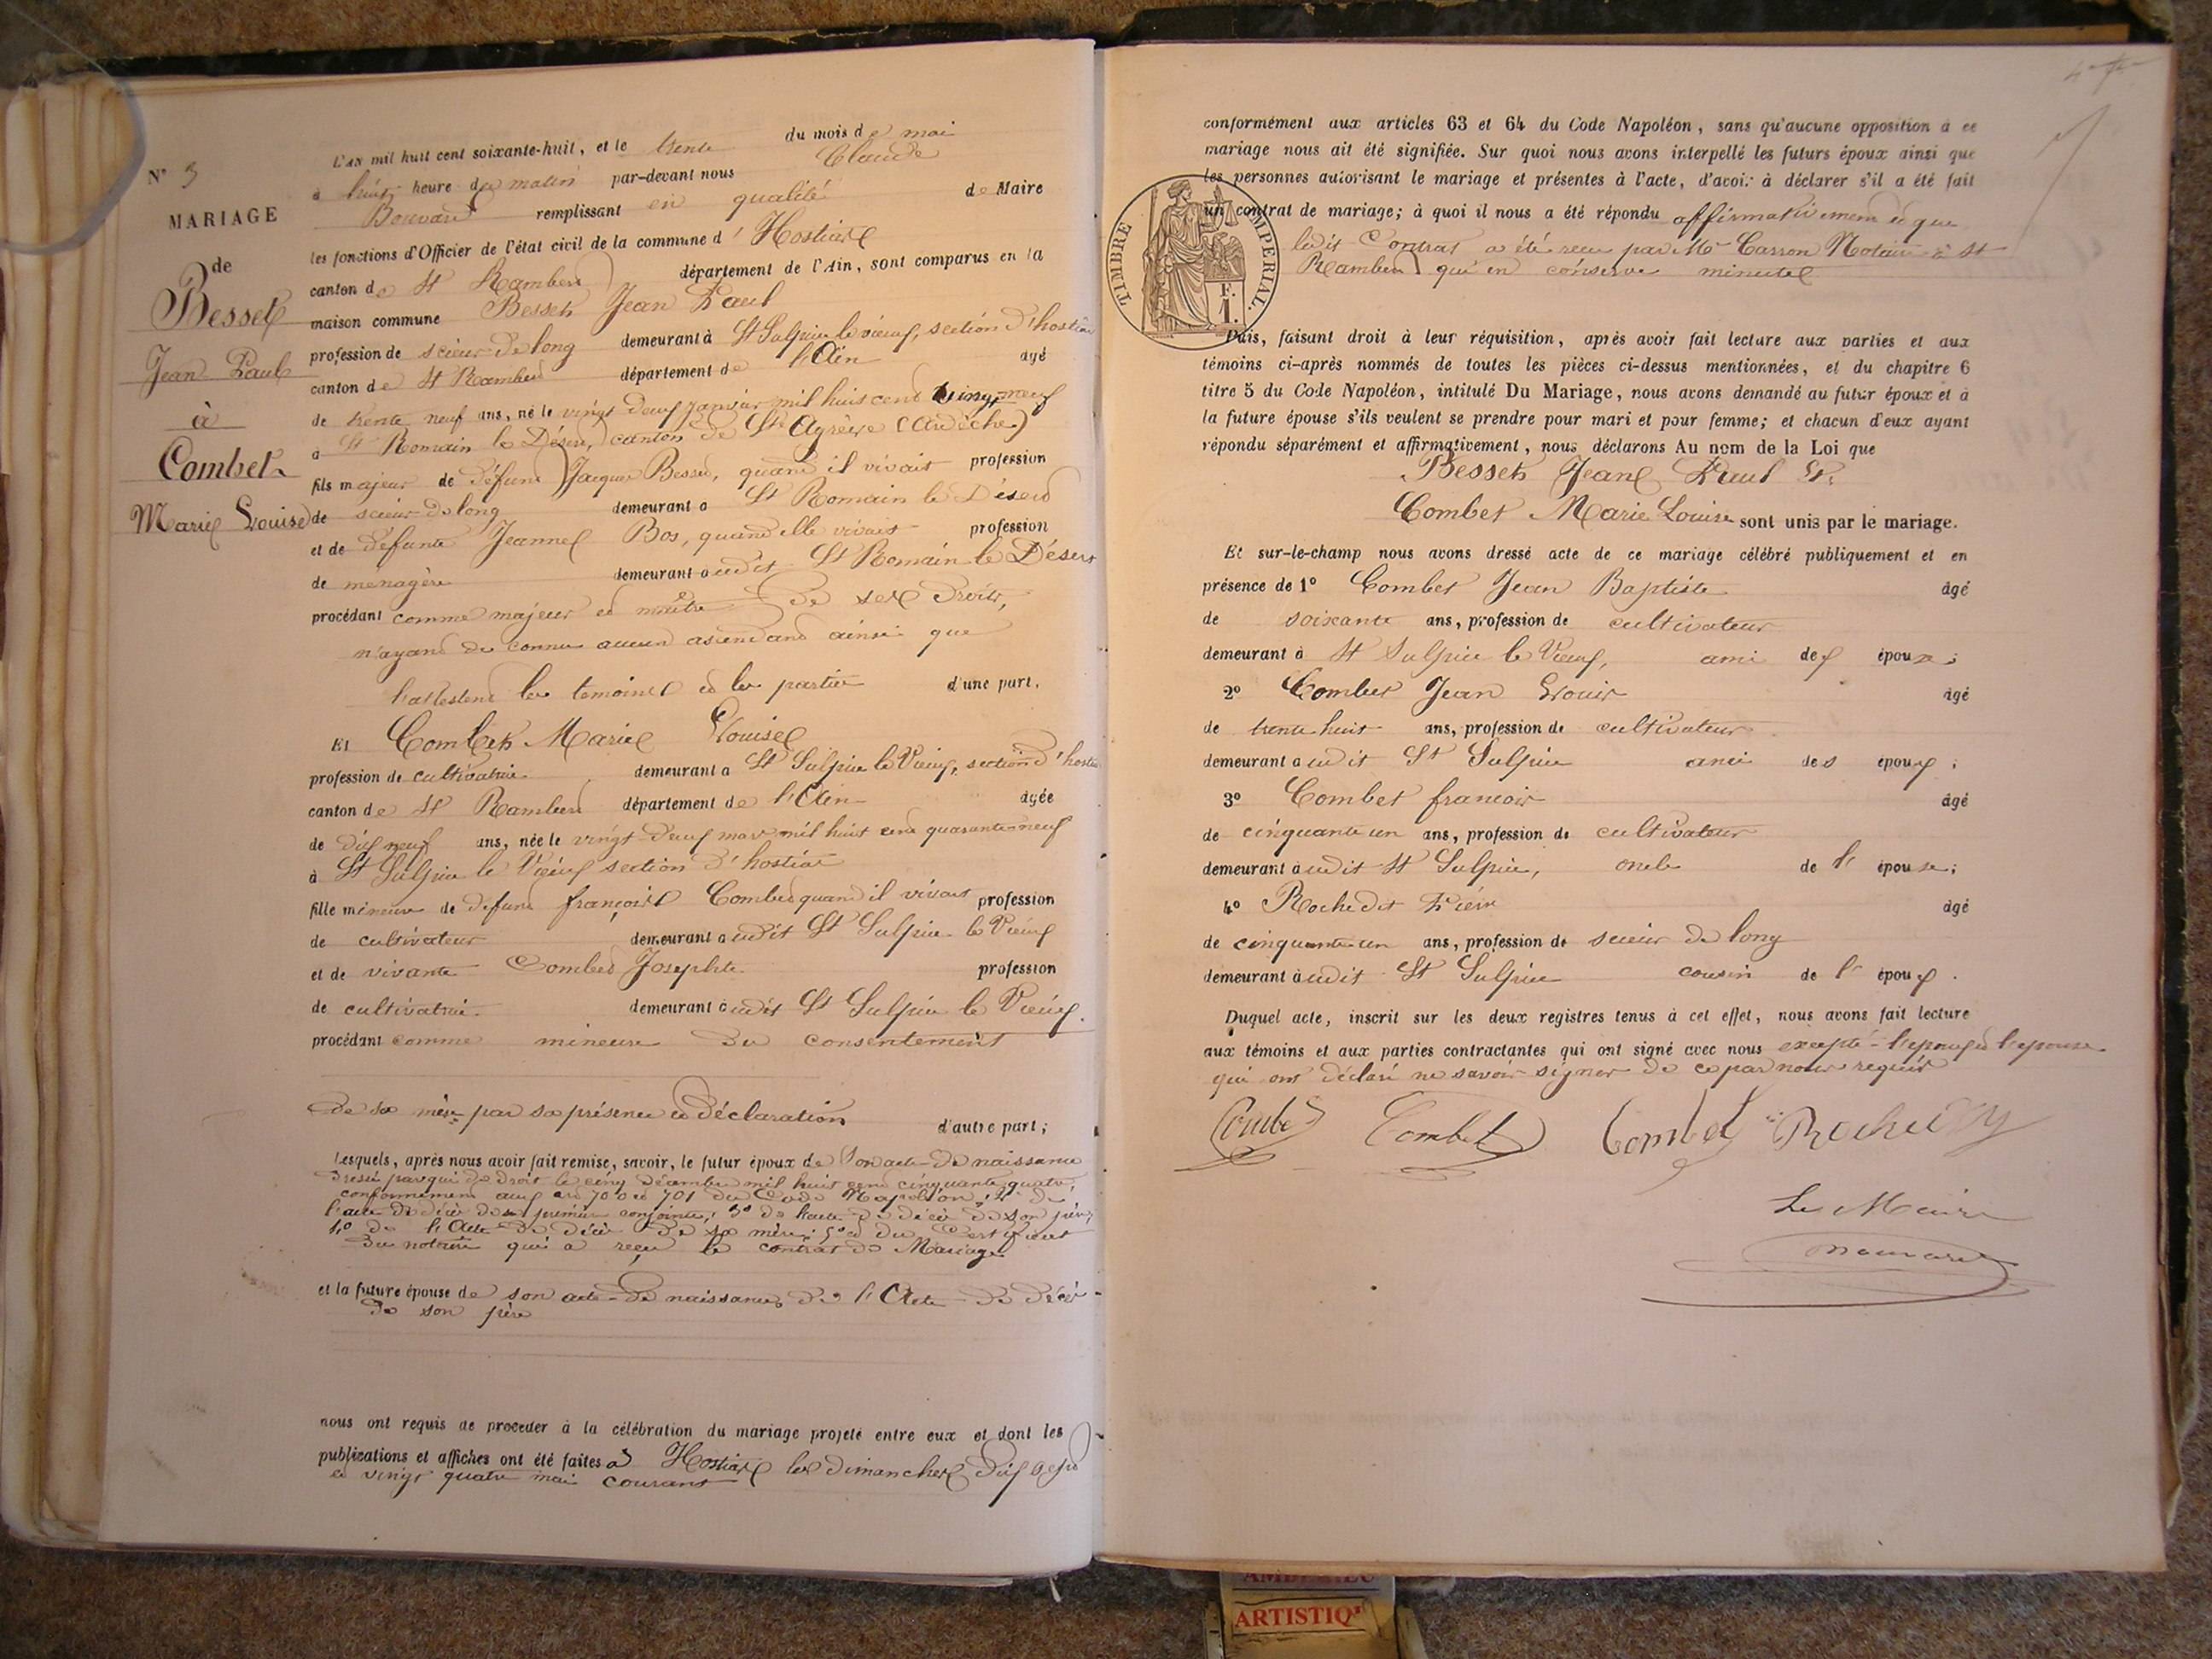 N° 3
MARIAGE
de
Besset
Jean Paul
à
Combet
Marie Louise
L'an mil huit cent soixante-huit, et le trente du mois de mai
à huit heure du matin par-devant nous Claude
Bouvard remplissant en qualité de Maire
les fonctions d'Officier de l'état civil de la commune d'Hostiaz
canton de St Rambert département de l'Ain, sont comparus en la
maison commune Besset Jean Paul
profession de scieur de long demeurant à St Sulpice le vieux, section d'hostiaz
canton de St Rambert département de l'Ain âgé
de trente neuf ans, né le vingt deux janvier mil huit cent vingt neuf
à St Romain le Désert, canton de St Agrève (ardèche)
fils majeur de défunt Jacques Besset, quand il vivait profession
de scieur de long demeurant à St Romain le Désert
et de défunte Jeanne Bos, quand elle vivait profession
de menagère demeurant audit St Romain le Désert
procédant comme majeur et maître de ses droits,
n'ayant de connu aucun ascendant ainsi que
l'attestent les temoins et les parties d'une part,
Et Combet Marie Louise
profession de cultivatrice demeurant à St Sulpice le Vieux, section d'hostiaz
canton de St Rambert département de l'Ain âgée
de dix neuf ans, née le vingt deux mars mil huit cent quarante neuf
à St Sulpice le Vieux section d'hostiaz
fille mineure de défunt françois Combet quand il vivait profession
de cultivateur demeurant audit St Sulpice le Vieux
et de vivante Combet Josephte profession
de cultivatrice demeurant audit St Sulpice le Vieux.
procédant comme mineure du consentement
de sa mère par sa présence et déclaration d'autre part;
Lesquels, après nous avoir fait remise, savoir, le futur époux de son acte de naissance
dressé par qui de droit le cinq décembre mil huit cent cinquante quatre,
conformément aux art 70 et 701 du Code Napoléon, 2° de
l'acte de décès de sa première conjointe, 3° de l'acte de décès de son père,
4° de l'Acte de décès de sa mère; 5° et du Certificat
du notaire qui a reçu le contrat de Mariage
et la future épouse de son acte de naissance, de l'Acte de décès
de son père
nous ont requis de procéder à la célébration du mariage projeté entre eux et dont les
publications et affiches ont été faites à Hostiaz les dimanches dix sept
et vingt quatre mai courant
conformément aux articles 63 et 64 du Code Napoléon, sans qu'aucune opposition à ce
mariage nous ait été signifiée. Sur quoi nous avons interpellé les futurs époux ainsi que
les personnes autorisant le mariage et présentes à l'acte, d'avoir à déclarer s'il a été fait
un contrat de mariage; à quoi il nous a été répondu affirmativement et que
ledit Contrat a été recu par Me Carron Notaire à St
Rambert qui en conserve minute
TIMBRE IMPERIAL.
F.
1.
Puis, faisant droit à leur réquisition, après avoir fait lecture aux parties et aux
témoins ci-après nommés de toutes les pièces ci-dessus mentionnées, et du chapitre 6
titre 5 du Code Napoléon, intitulé Du Mariage, nous avons demandé au futur époux et à
la future épouse s'ils veulent se prendre pour mari et pour femme; et chacun d'eux ayant
répondu séparément et affirmativement, nous déclarons Au nom de la Loi que
Besset Jean Paul Et
Combet Marie Louise sont unis par le mariage.
Et sur-le-champ nous avons dressé acte de ce mariage célébré publiquement et en
présence de 1° Combet Jean Baptiste âgé
de soixante ans, profession de cultivateur
demeurant à St Sulpice le Vieux, ami des époux;
2° Combet Jean Louis âgé
de trente huit ans, profession de cultivateur
demeurant audit St Sulpice ami des époux;
3° Combet francois âgé
de cinquante un ans, profession de cultivateur
demeurant audit St Sulpice, oncle de l'épouse;
4° Rochedit Pierre âgé
de cinquante un ans, profession de scieur de long
demeurant audit St Sulpice cousin de l'époux.
Duquel acte, inscrit sur les deux registres tenus à cet effet, nous avons fait lecture
aux témoins et aux parties contractantes qui ont signé avec nous excepté l'époux et l'épouse
qui ont déclaré ne savoir signer de ce par nous requis
Combet Combet Combet Rochedit
Le Maire
Bouvard
ARTISTIQ